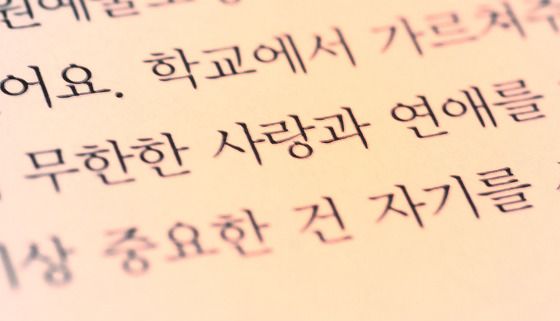 어요. 학교에서 가르쳐주
무한한 사랑과 연애를
이상 중요한 건 자기를